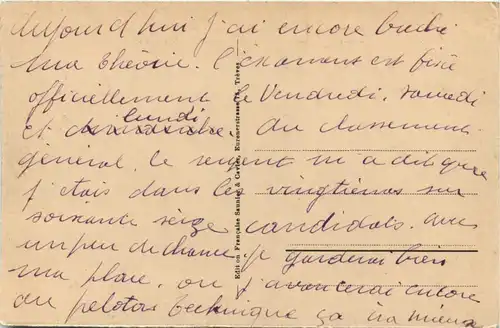 aujourd'hui j'ai encore buché
ma théorie. l'examens est fixé
officiellement le Vendredi, samedi
et dimanche lundi au classement
général. le sergent m'a dit que
j'etais dans les vingtièmes sur
soixante seize candidats. avec
un peu de chance je garderai bien
ma place. ou j'avancerai encore
au peloton technique ça va mieux
Edition Française Saunier &